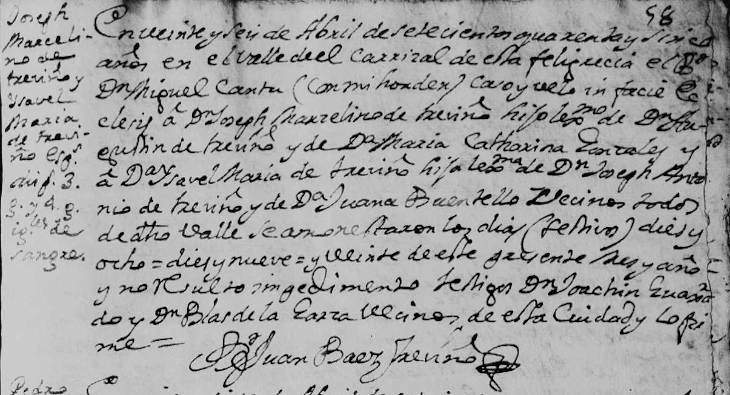 58
Joseph
Marceli-
no de
treviño y
Ysavel
Maria
de trevi-
ño Esps
disp. 3.
3. y 4. g.
igles de
sangre.
En veinte y seis de Abril de setecientos quarenta y sinco
años en el valle de el Carrizal de esta feligrecia el Br
Dn Miguel Cantu (con mi horden) caso y velo in facie Ec
clesie â Dn Joseph Marzelino de treviño hijo lexmo de Dn Au-
gustin de treviño y de Da Maria Catharina Gonzales y
â Da Ysavel Maria de treviño hija lexma de Dn Joseph Anto
nio de treviño y de Da Juana Buentello Vecinos todos
de dtho Valle se amonestaron los dias (festivos) dies y
ocho = dies y nueve = y veinte de este presente mes y año
y no Resulto impedimento testigos Dn Joachin Guaxa
do y Dn Blas de la Garza Vecinos de esta Ciudad y lo fir
me =
Br Juan Baez treviño
Pedro